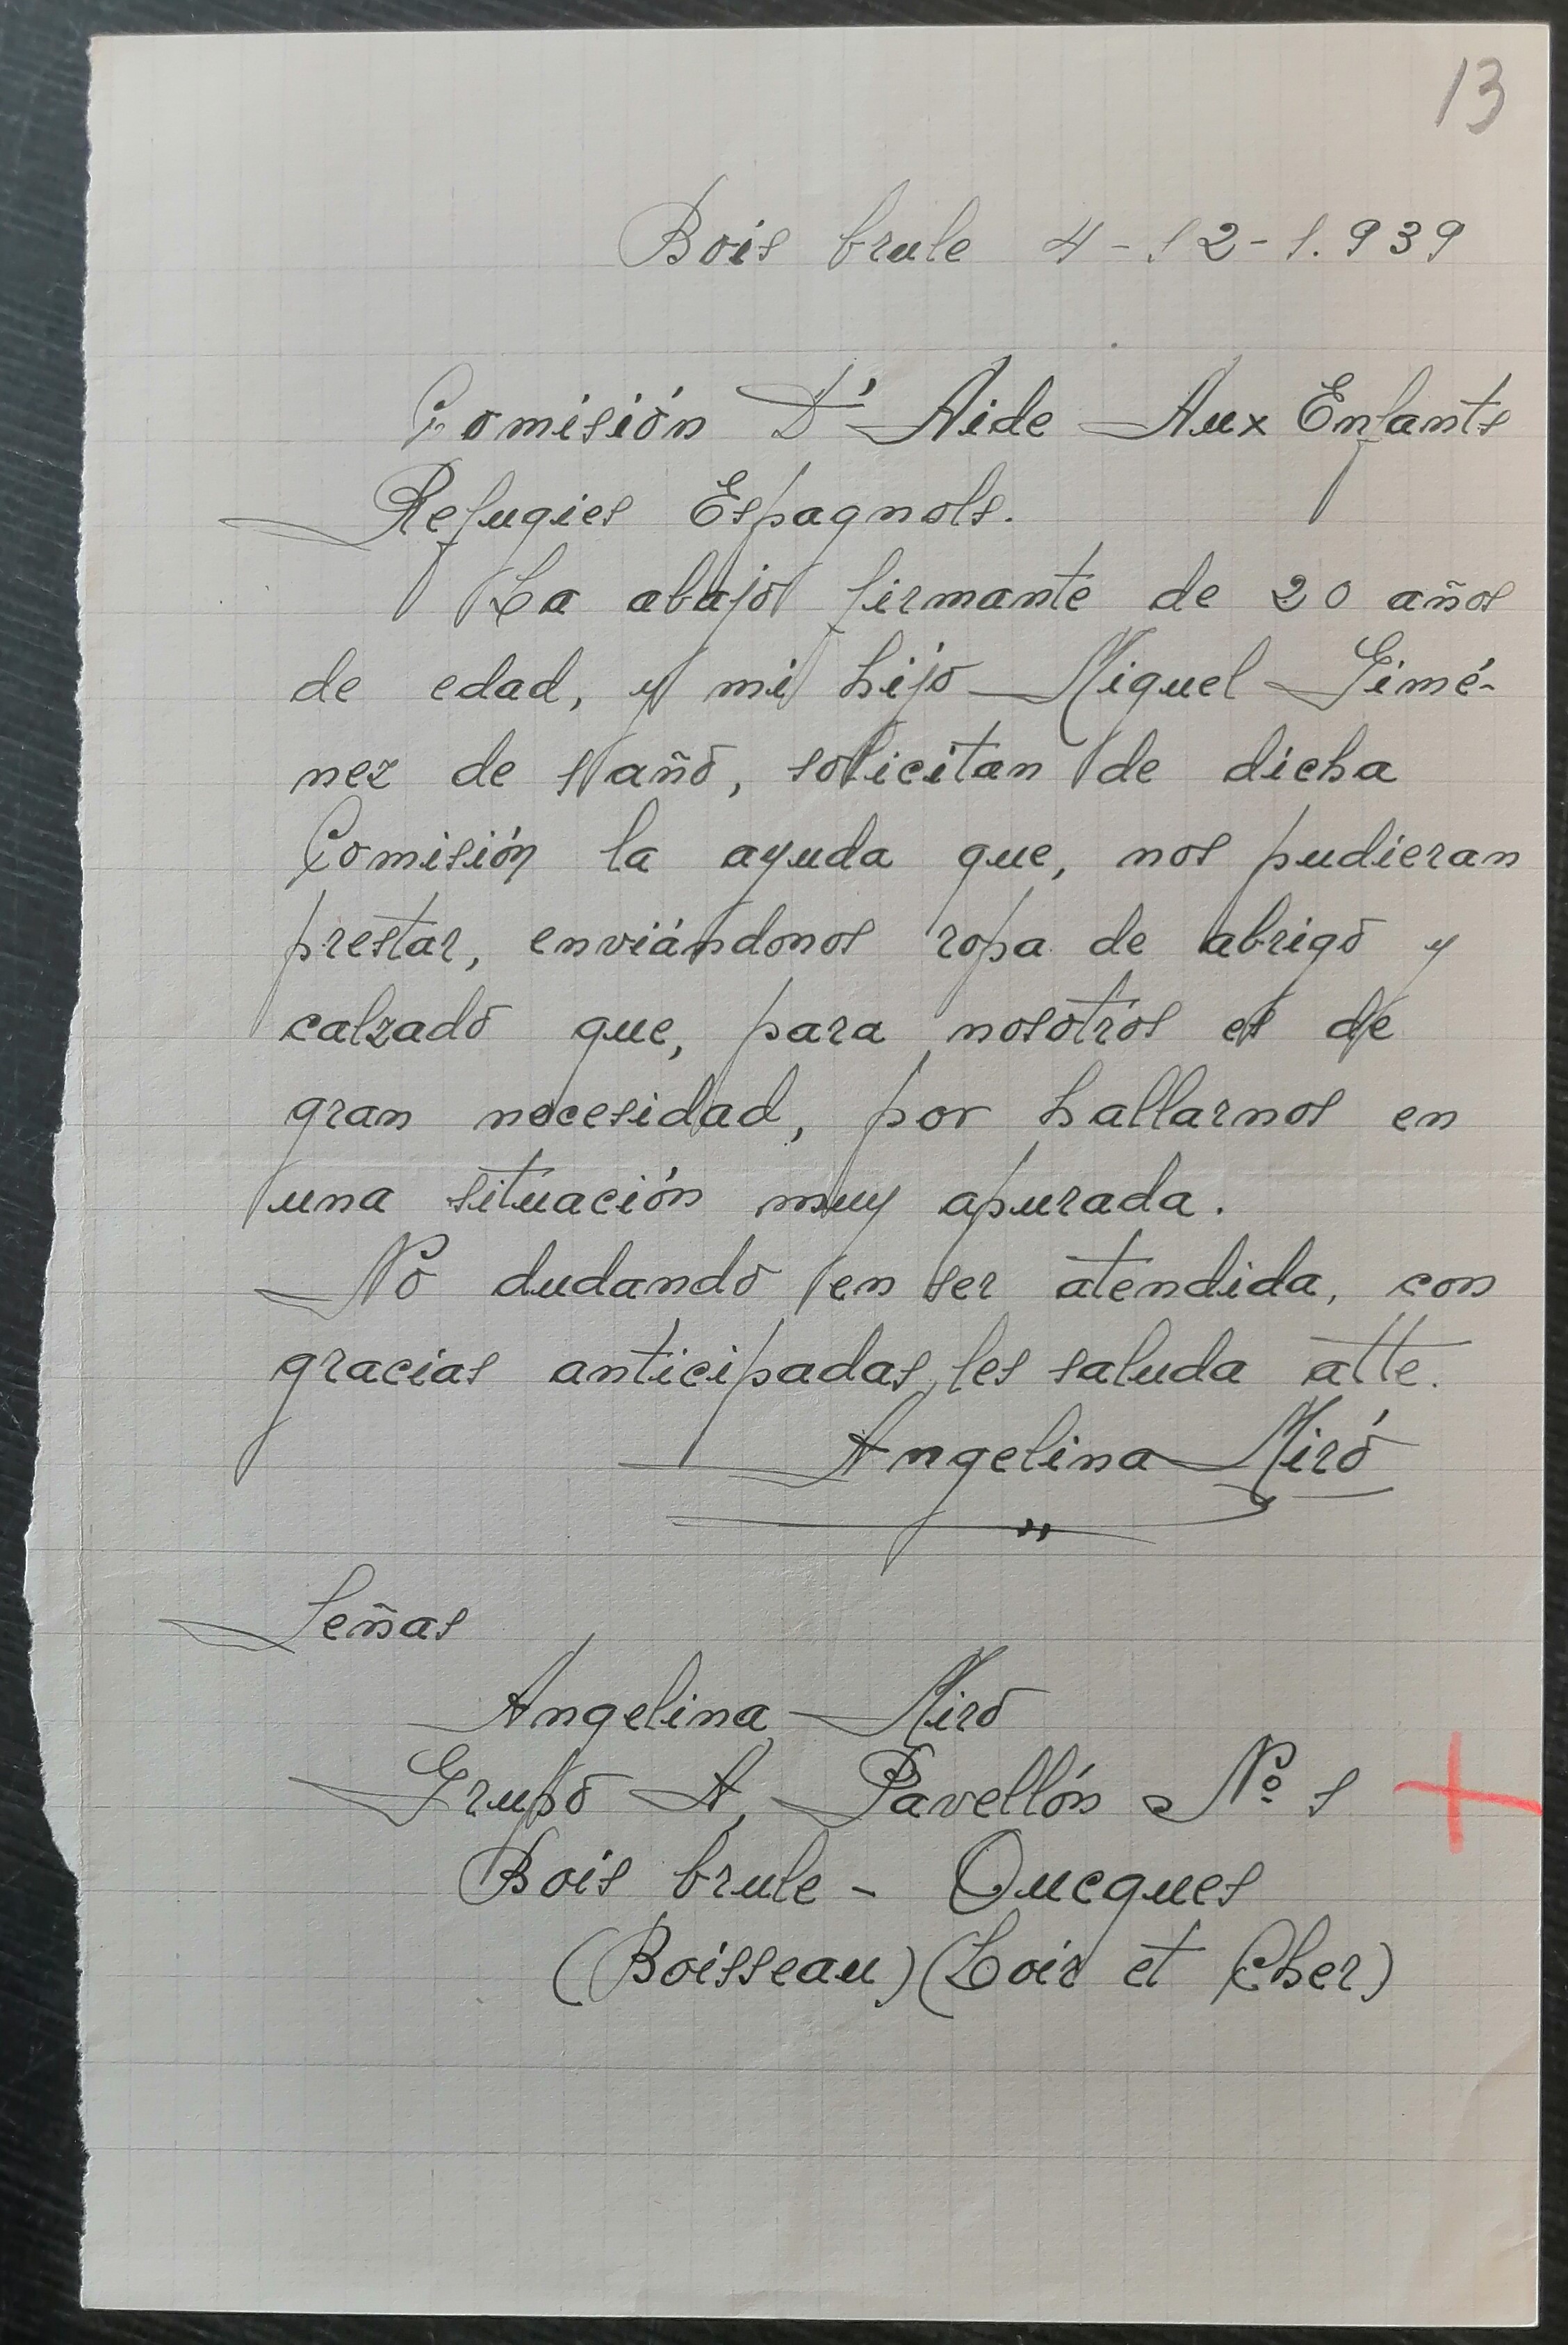 13
Bois brule 4-12-1.939
Comisión D'Aide Aux Enfants
Refugies Espagnols.
La abajo firmante de 20 años
de edad, y mi hijo Miguel Gimé-
nez de 1 año, solicitan de dicha
Comisión la ayuda que, nos pudieran
prestar, enviándonos ropa de abrigo y
calzado que, para nosotros es de
gran necesidad, por hallarnos en
una situación muy apurada.
No dudando en ser atendida, con
gracias anticipadas, les saluda atte.
Angelina Miró
Señas
Angelina Miró
Grupo A, Pavellón Nº 1
Bois brule - Oucques
(Boisseau) (Loir et Cher)